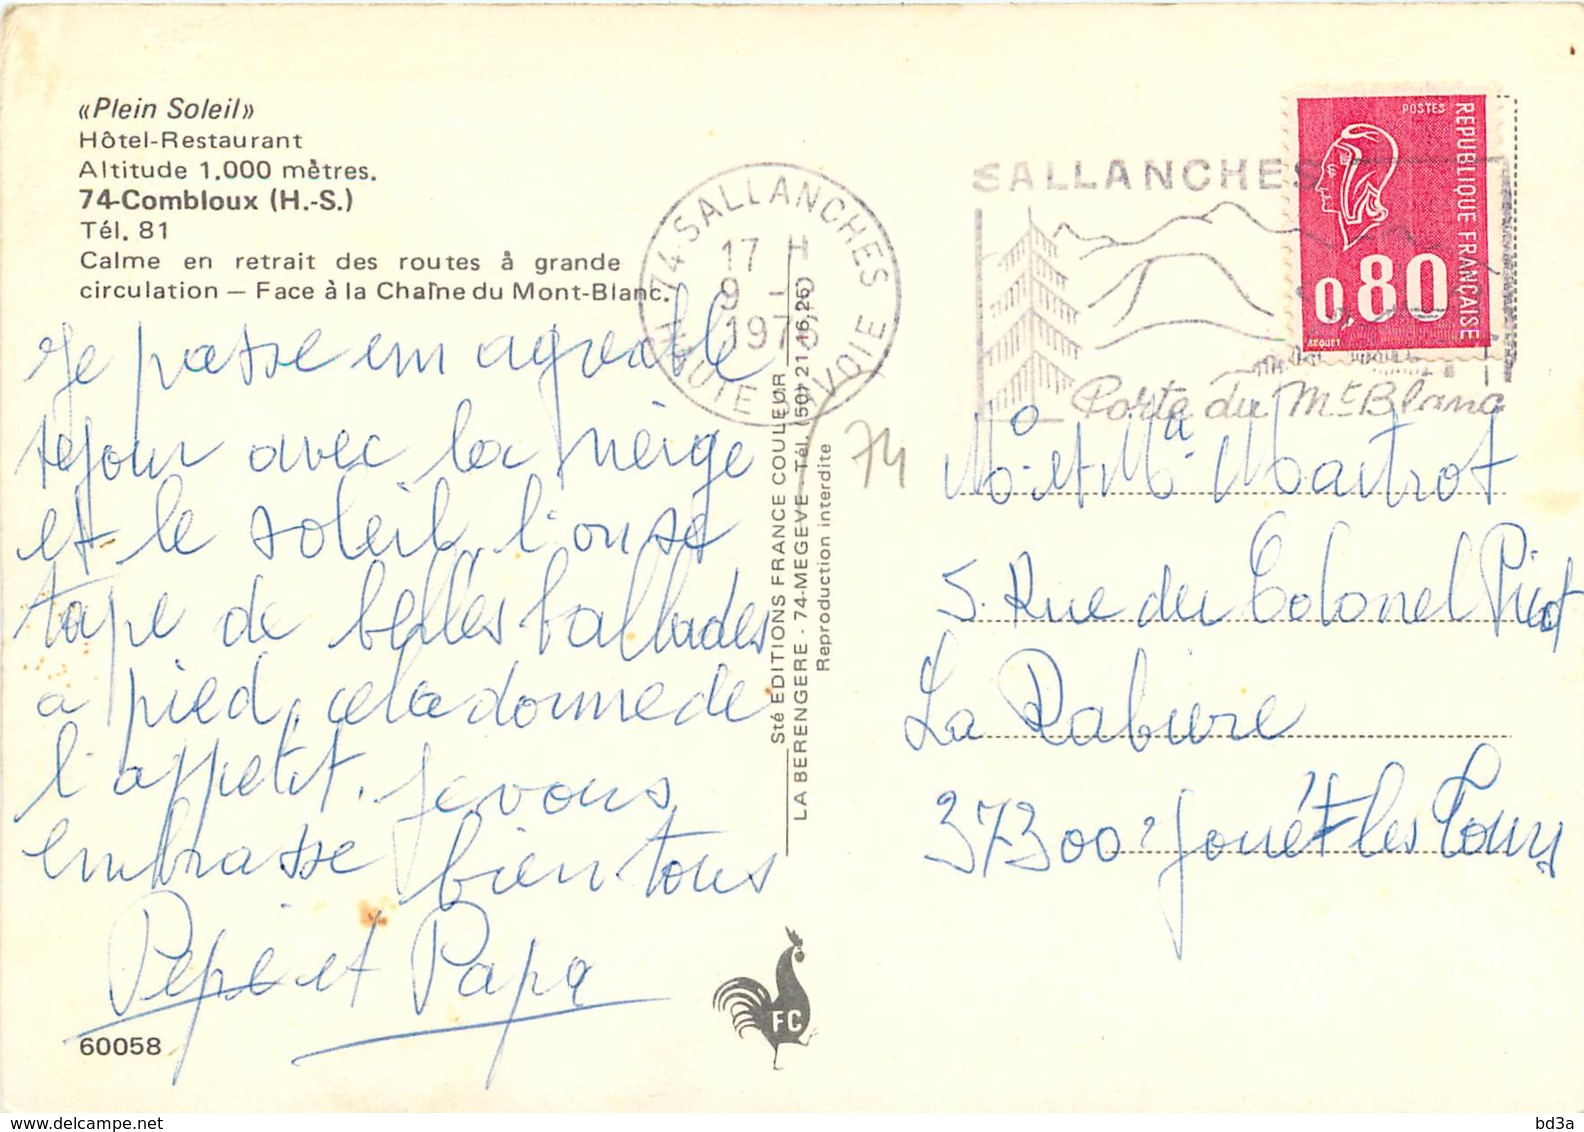 «Plein Soleil»
Hôtel-Restaurant
Altitude 1.000 mètres.
74-Combloux (H.-S.)
Tél. 81
Calme en retrait des routes à grande
circulation — Face à la Chaîne du Mont-Blanc.
Je passe un agreable
sejour avec la neige
et le soleil, l'on se
tape de belles ballades
a pied, cela donne de
l'appetit. Je vous
embrasse bien tous
Pépé et Papa
60058
74 SALLANCHES
17 H
9 -
1976
HAUTE SAVOIE
Sté EDITIONS FRANCE COULEUR
LA BERENGERE - 74-MEGEVE Tél. (50) 21.16.25
Reproduction interdite
74
FC
SALLANCHES
Porte du Mt Blanc
POSTES
REPUBLIQUE FRANÇAISE
0,80
Mo et Ma Martrot
5. Rue du Colonel Picot
La Rabière
37300 Joué les Tours
bd3a